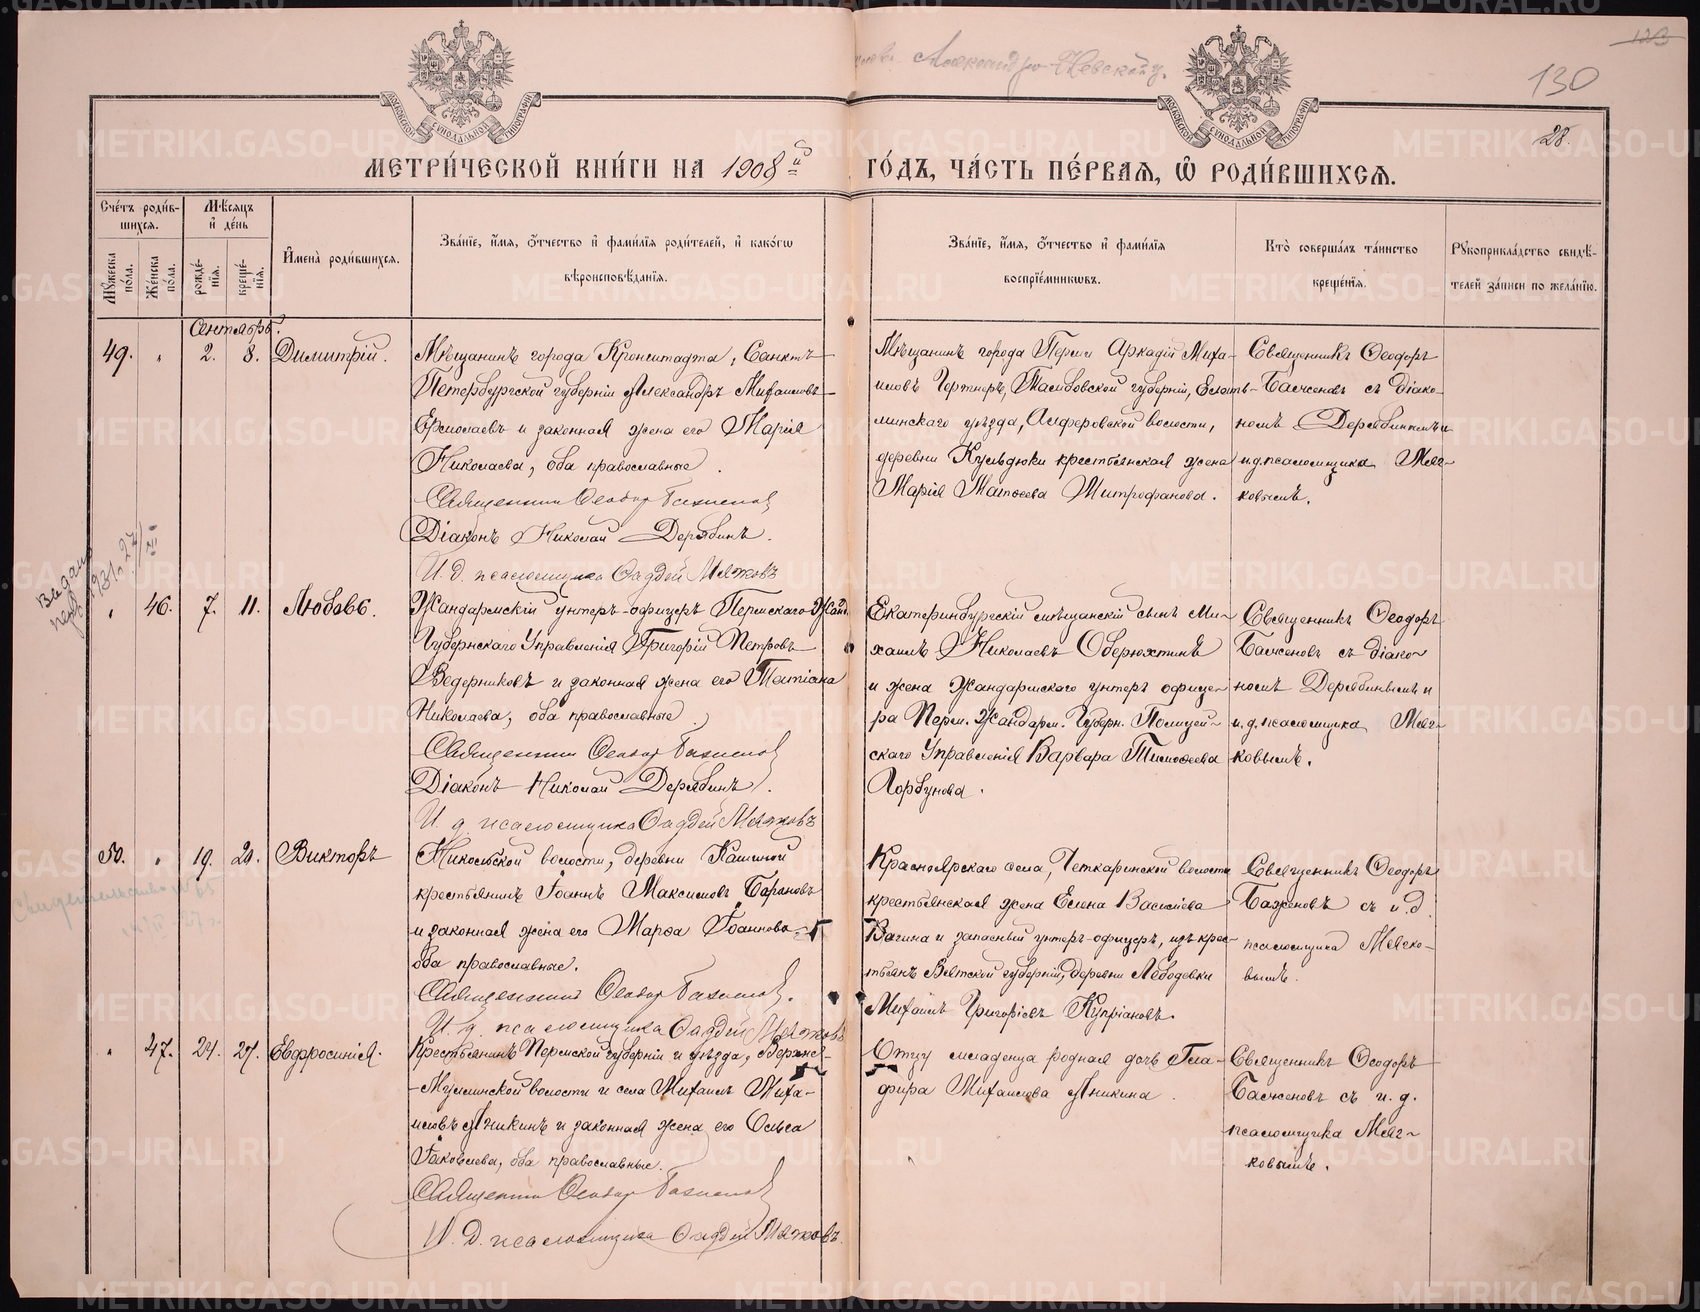 Александро-Невской ц.
123
130
28.
МОСКОВСКОЙ СѴНОДАЛЬНОЙ ТИПОГРАФІИ
МОСКОВСКОЙ СѴНОДАЛЬНОЙ ТИПОГРАФІИ
МЕТРИ́ЧЕСКОЙ КНИ́ГИ НА 1908й ГО́ДЪ, ЧА́СТЬ ПЕ́РВАѦ, Ѡ РОДИ́ВШИХСѦ.
Сче́тъ роди́в-
шихсѧ.
Мꙋ́жеска по́ла.
Же́нска по́ла.
Мѣ́сѧцъ
и҆ де́нь
рожде́-
нїѧ.
креще́-
нїѧ.
И҆мена̀ роди́вшихсѧ.
Зва́нїе, и҆́мѧ, ѻ҆́тчество и҆ фами́лїѧ роди́телей, и҆ како́гѡ
вѣроисповѣ́данїѧ.
Зва́нїе, и҆́мѧ, ѻ҆́тчество и҆ фами́лїѧ
воспрїе́мникѡвъ.
Кто̀ соверша́лъ та́инство
креще́нїѧ.
Рꙋкоприкла́дство свидѣ́-
телей за́писи по жела́нїю.
Сентябрь.
49. " 2. 8. Димитрій.
Мѣщанинъ города Кронштадта, Санктъ-
Петербургской губерніи Александръ Михаиловъ
Ермолаевъ и законная жена его Марія
Николаева, оба православные.
Священникъ Ѳеодоръ Баженовъ
Діаконъ Николай Дерябинъ.
И. д. псаломщика Ѳаддей Мягковъ
Мѣщанинъ города Перми Аркадій Миха-
иловъ Гертнеръ, Тамбовской губерніи, Елать-
минскаго уѣзда, Алферовской волости,
деревни Кульдюки крестьянская жена
Марія Матѳеева Митрофанова.
Священникъ Ѳеодоръ
Баженовъ съ діако-
номъ Дерябинымъ и
и.д. псаломщика Мяг-
ковымъ.
Выдано
1931. 27/III
" 46. 7. 11. Любовь.
Жандармскій унтеръ-офицеръ Пермскаго Жанд
Губернскаго Управленія Григорій Петровъ
Ведерниковъ и законная жена его Татіана
Николаева, оба православные.
Священникъ Ѳеодоръ Баженовъ
Діаконъ Николай Дерябинъ.
И. д. псаломщика Ѳаддей Мягковъ
Екатеринбургскій мѣщанскій сынъ Ми-
хаилъ Николаевъ Оберюхтинъ
и жена Жандармскаго унтеръ офице-
ра Перм. Жандарм. Губерн. Полицей-
скаго Управленія Варвара Тимоѳеева
Горбунова.
Священникъ Ѳеодоръ
Баженовъ съ діако-
номъ Дерябинымъ и
и.д. псаломщика Мяг-
ковымъ.
50. " 19. 21. Викторъ
Свидетельство
Никольской волости, деревни Пашиной
крестьянинъ Іоаннъ Максимовъ Барановъ
и законная жена его Марѳа Іоаннова,
оба православные.
Священникъ Ѳеодоръ Баженовъ.
И. д. псаломщика Ѳаддей Мягковъ
Красноярскаго села, Четкаринской волости
крестьянская жена Елена Васильева
Вагина и запасный унтеръ-офицеръ, изъ крес-
тьянъ Вятской губерніи, деревни Лебодевки
Михаилъ Григорьевъ Купріановъ.
Священникъ Ѳеодоръ
Баженовъ съ и.д.
псаломщика Мягко-
вымъ.
" 47. 24. 27. Евфросинія.
Крестьянинъ Пермской губерніи и уѣзда, Верхне-
-Муллинской волости и села Михаилъ Миха-
иловъ Аникинъ и законная жена его Ольга
Іаковлева, оба православные.
Священникъ Ѳеодоръ Баженовъ
И. Д. псаломщика Ѳаддей Мягковъ.
Отцу младенца родная дочь Гла-
фира Михаилова Аникина.
Священникъ Ѳеодоръ
Баженовъ съ и. д.
псаломщика Мяг-
ковымъ.
METRIKI.GASO-URAL.RU